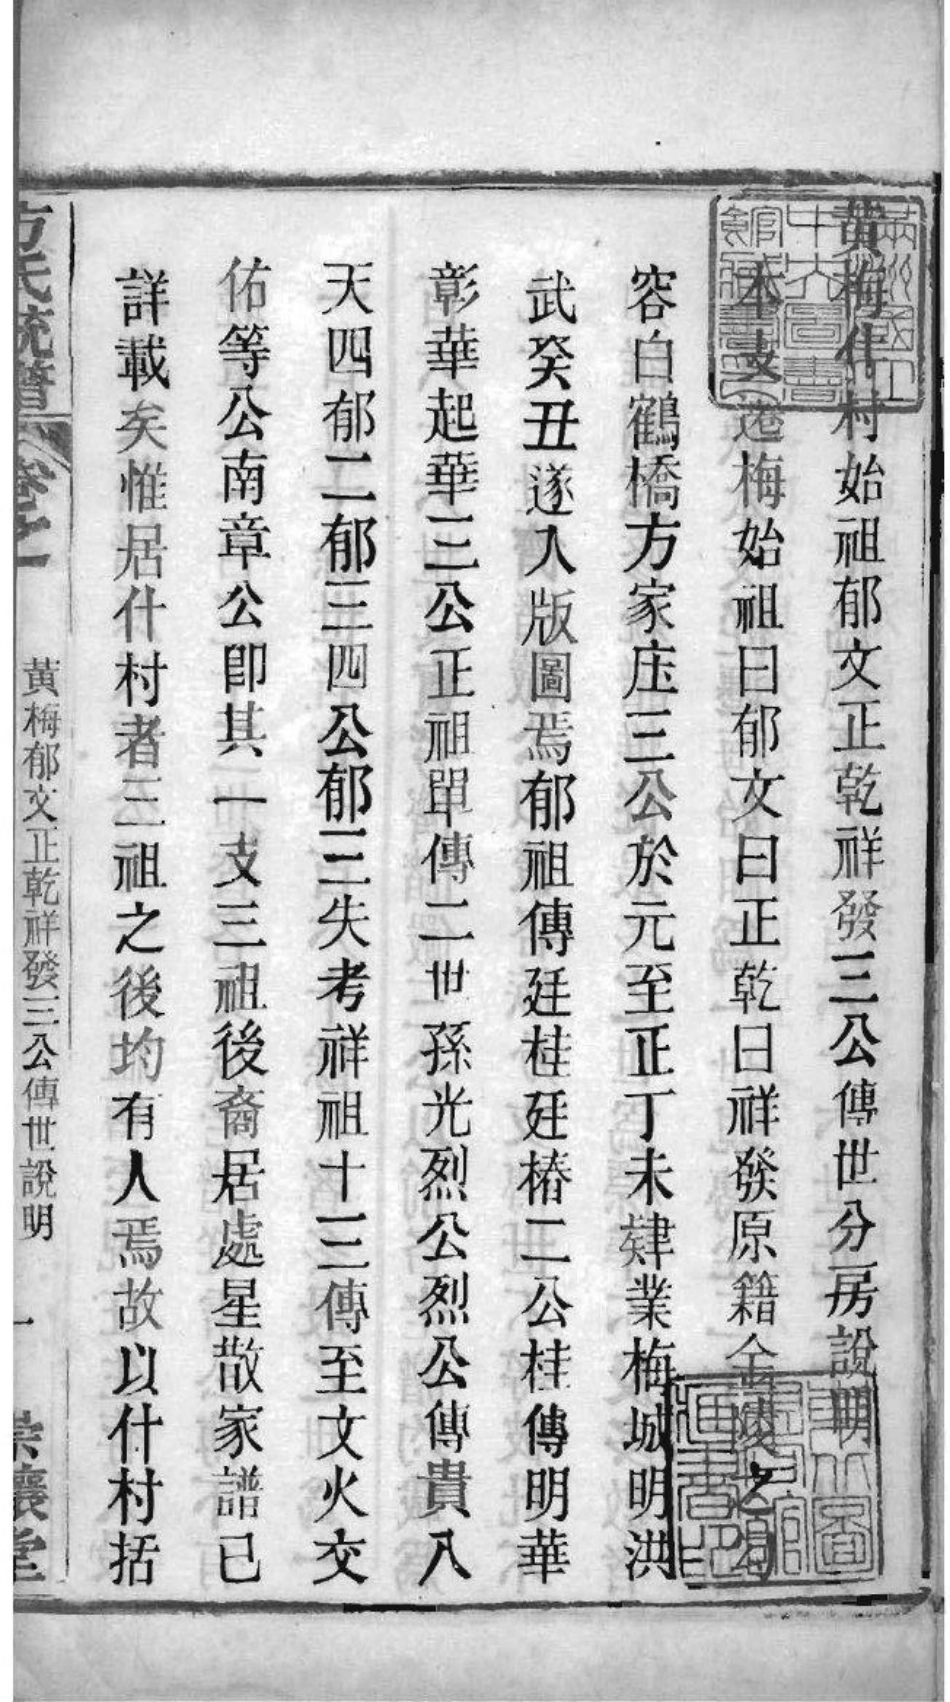 黃梅什村始祖郁文正乾祥發三公傳世分房說明
本支遷梅始祖曰郁文曰正乾曰祥發原籍金陵之句
容白鶴橋方家庄三公於元至正丁未肄業梅城明洪
武癸丑遂入版圖焉郁祖傳廷桂廷椿二公桂傳明華
彰華起華三公正祖單傳二世孫光烈公烈公傳貴八
天四郁二郁三四公郁三失考祥祖十三傳至文火交
佑等公南章公卽其一支三祖後裔居處星散家譜已
詳載矣惟居什村者三祖之後均有人焉故以什村括
方氏統譜
卷之
黃梅郁文正乾祥發三公傳世說明
一
崇讓堂